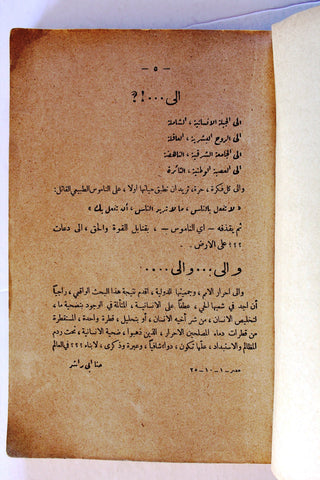 — ٥ —
الى . . . !؟
الى الجبلة الانسانية ، الشاملة
الى الروح البشرية ، العاقلة
الى الجامعة الشرقية ، الناهضة
الى العصبية الوطنية ، الثائرة
والى كل فكرة ، حرة ، تريد ان تطبق حياتها اولا ، على الناموس الطبيعي القائل :
« لا تفعل بالناس ، ما لا تريد الناس ، أن تفعل بك »
ثم يقذفه – اي الناموس – ، بقنابل القوة والحق ، الى دعات
٢٢٢ على الارض .
والى . . . والى . . . . . .
والى احرار الامم ، وجمعيتها الدولية ، اقدم نتيجة هذا البحث الواقعي ، راجياً
ان اجد في شعبها الحي ، عطفاً على الانسانية ، المتألة في الوجود ونصحية ما ،
لتخليص الانسان ، من شر أخيه الانسان ، أو بتحليل ، قطرة واحدة ، المستقطرة
من قطرات دماء المصلحين الاحرار ، الذين ذهبوا ، ضحية الانسانية ، تحت ردم
المظالم والاستبداد ، علّها تكون ، دواءً شافياً ، وعبرة وذكرى ، لابناء ٢٢٢ في العالم
مصر – ١ – ١٠ – ٢٥
حنا ابي راشد